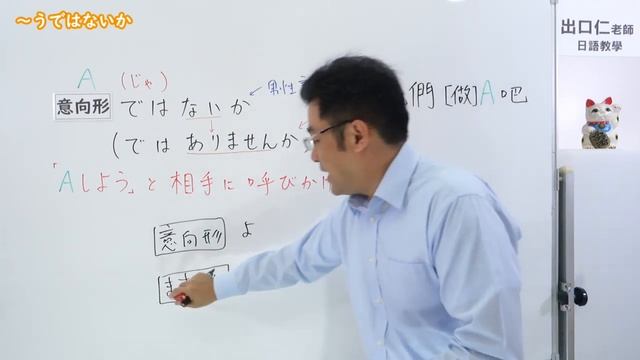 ～うではないか
出口仁老師
日語教學
A (じゃ)
意向形 ではないか ← 男性
們[做]A吧
(ではありませんか
「Aしよう」と相手に呼びか
意向形 よ
ま